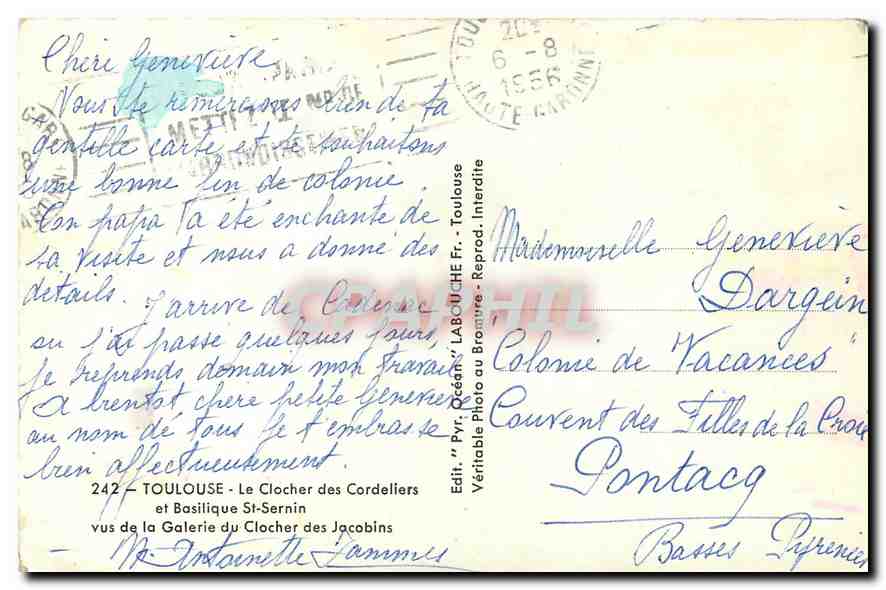 Chère Geneviève
Nous te remercions bien de ta
gentille carte et te souhaitons
une bonne fin de colonie.
Ton papa a été enchanté de
sa visite et nous a donné des
détails. J'arrive de Cadenac
ou j'ai passé quelques jours,
je reprends demain mon travail.
A bientot chère petite Geneviève
au nom de tous je t'embrasse
bien affectueusement.
242 — TOULOUSE - Le Clocher des Cordeliers
et Basilique St-Sernin
vus de la Galerie du Clocher des Jacobins
M. Antoinette Jammes
Edit. " Pyr. Océan " LABOUCHE Fr. - Toulouse
Véritable Photo au Bromure - Reprod. Interdite
6 - 8
1956
HAUTE GARONNE
METTEZ
CPAPHIL
Mademoiselle Geneviève
Dargein
"Colonie de Vacances"
Couvent des Filles de la Croix
Pontacq
Basses Pyrénées